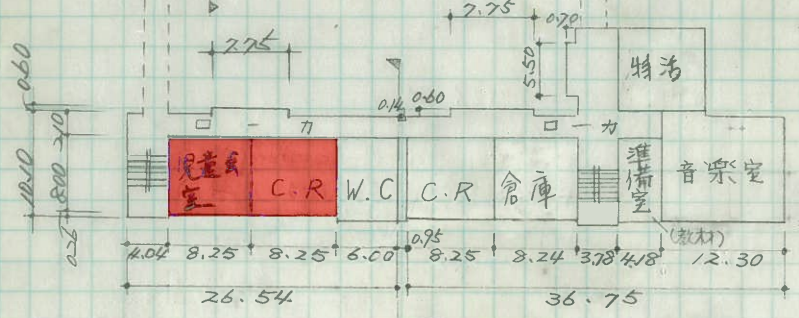 7.75
7.75
0.70
5.50
特活
0.60
0.14
0.60
一 力
一 力
10.10
2.10
8.00
0.26
児童会
室
C.R
W.C
C.R
倉庫
準備室
音楽室
(教材)
4.04
8.25
8.25
6.00
0.95
8.25
8.24
3.78
4.18
12.30
26.54
36.75